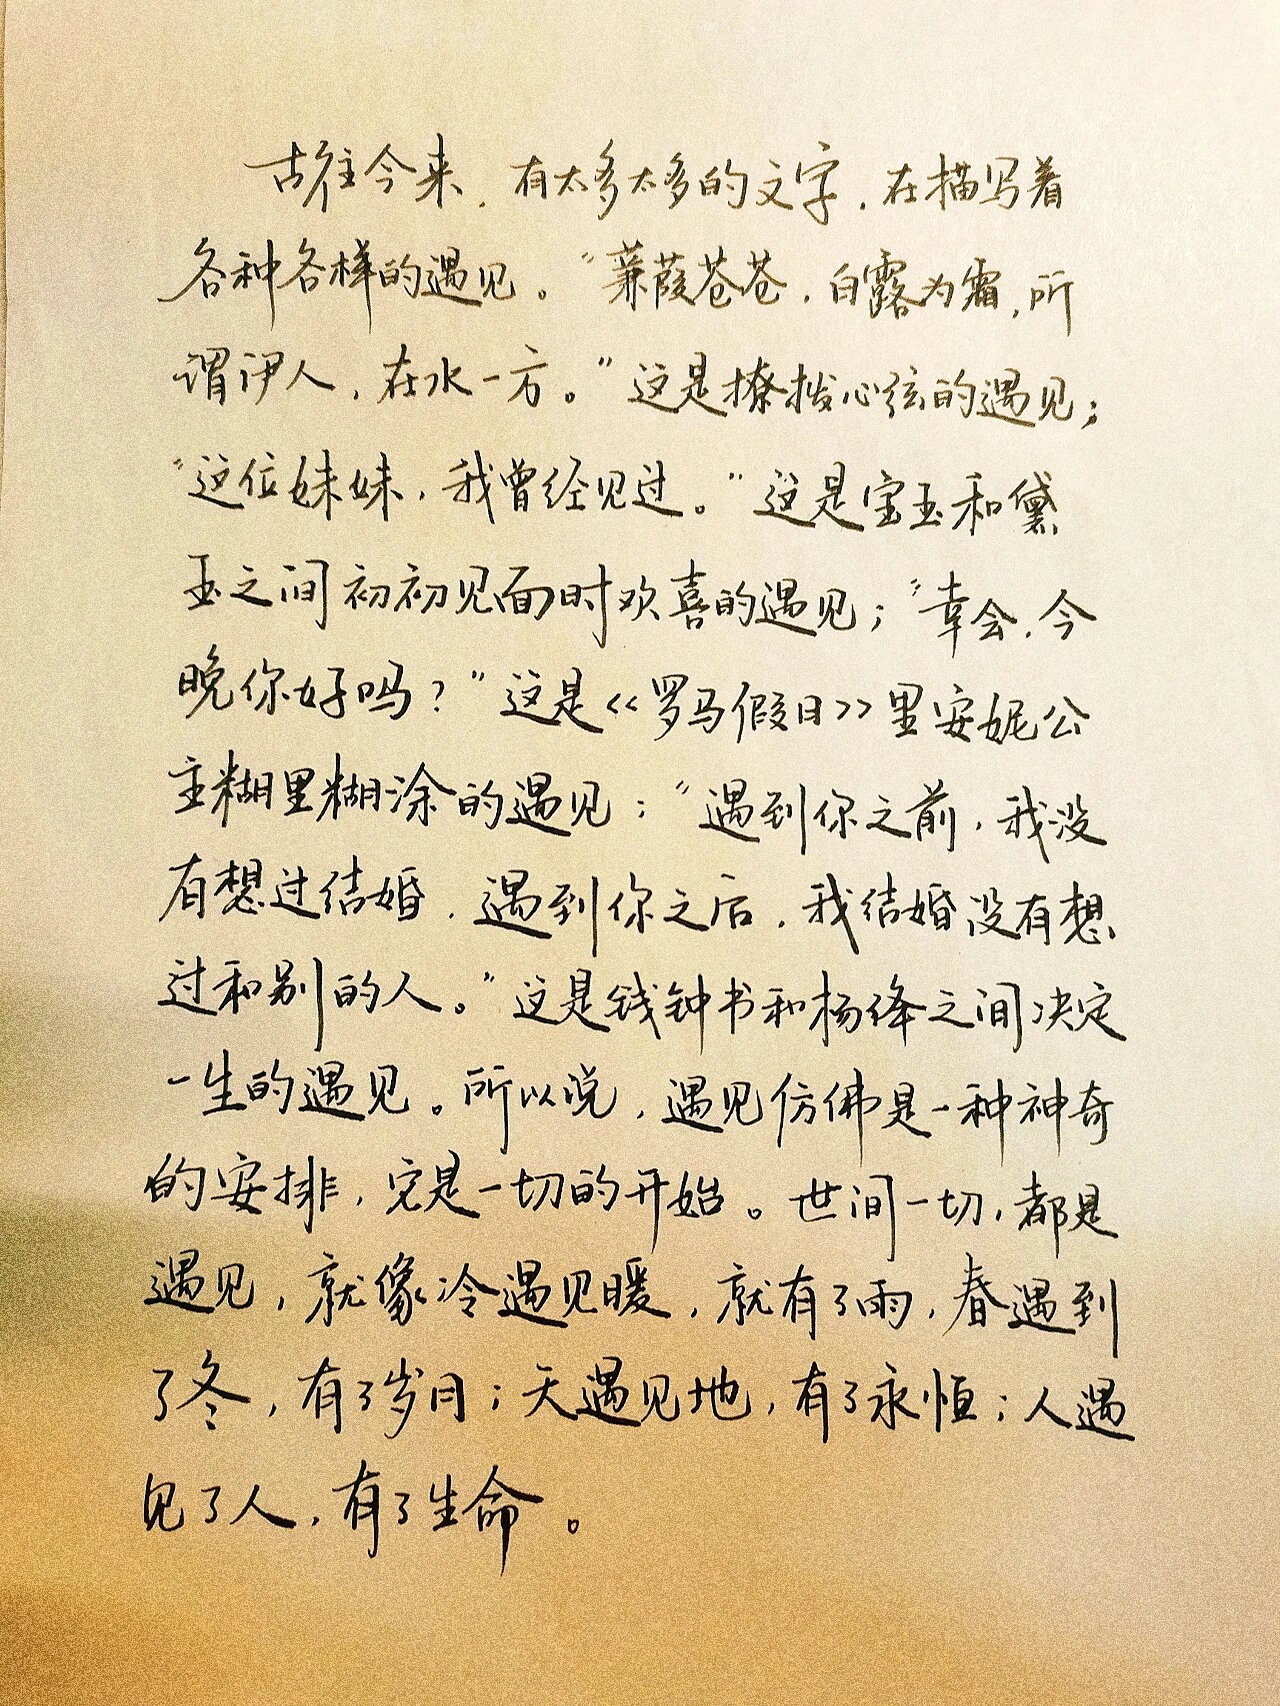 古往今来,有太多太多的文字,在描写着
各种各样的遇见。"蒹葭苍苍,白露为霜,所
谓伊人,在水一方。"这是撩拨心弦的遇见;
"这位妹妹,我曾经见过。"这是宝玉和黛
玉之间初初见面时欢喜的遇见;"幸会,今
晚你好吗?"这是《罗马假日》里安妮公
主糊里糊涂的遇见;"遇到你之前,我没
有想过结婚,遇到你之后,我结婚没有想
过和别的人。"这是钱钟书和杨绛之间决定
一生的遇见。所以说,遇见仿佛是一种神奇
的安排,它是一切的开始。世间一切,都是
遇见,就像冷遇见暖,就有了雨,春遇到
了冬,有了岁月;天遇见地,有了永恒;人遇
见了人,有了生命。